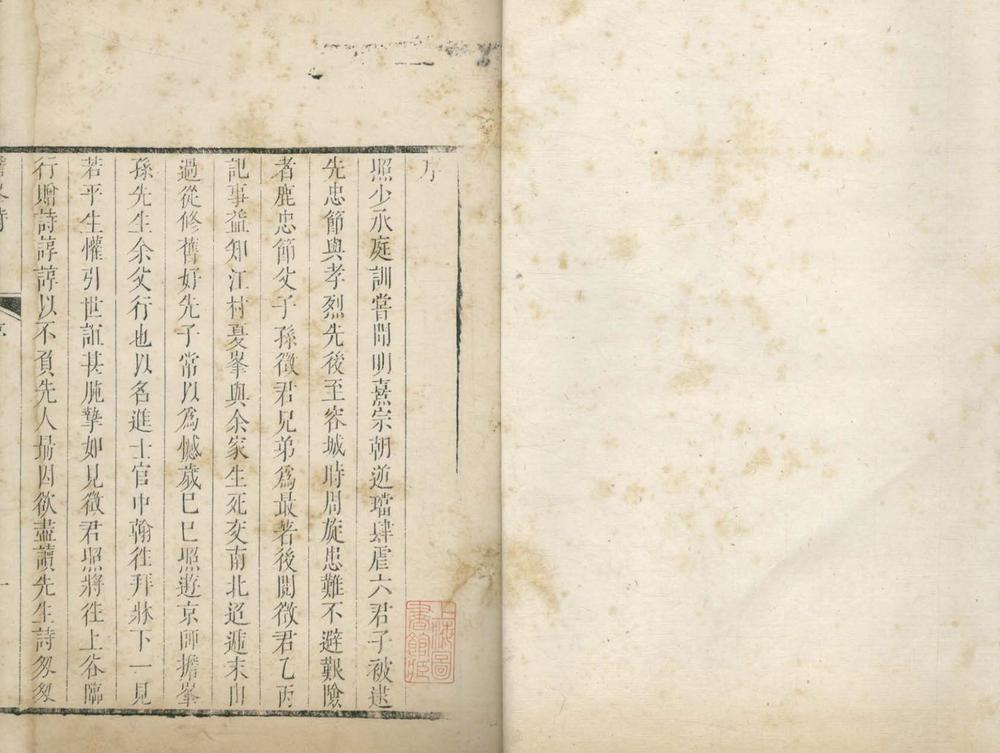 序
照少承庭訓嘗聞明熹宗朝逆璫肆虐六君子被逮
先忠節與孝烈先後至容城時周旋患難不避艱險
者鹿忠節父子孫徵君兄弟爲最著後閱徵君乙丙
記事益知江村夏峯與余家生死交南北迢遞末由
過從修舊好先子常以爲憾歲己巳照遊京師擔峯
孫先生余父行也以名進士官中翰往拜牀下一見
若平生懽引世誼甚肫摯如見徵君照將往上谷臨
行贈詩諄諄以不負先人最因欲盡讀先生詩匆匆
上海圖書館藏